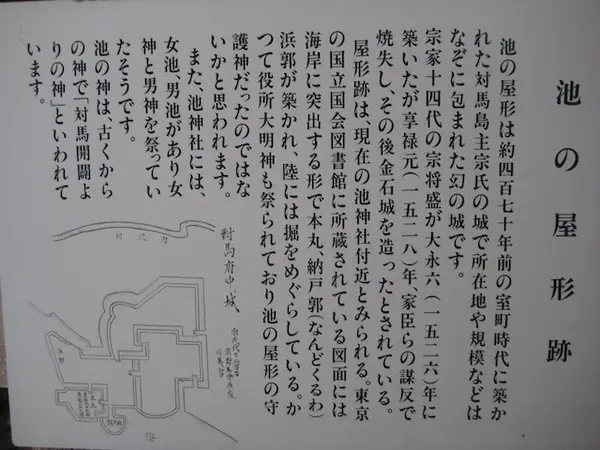 池の屋形跡
池の屋形は約四百七十年前の室町時代に築か
れた対馬島主宗氏の城で所在地や規模などは
なぞに包まれた幻の城です。
宗家十四代の宗将盛が大永六(一五二六)年に
築いたが享禄元(一五二八)年、家臣らの謀反で
焼失し、その後金石城を造ったとされている。
屋形跡は、現在の池神社付近とみられる。東京
の国立国会図書館に所蔵されている図面には
海岸に突出する形で本丸、納戸郭(なんどくるわ)
浜郭が築かれ、陸には堀をめぐらしている。か
つて役所大明神も祭られており池の屋形の守
護神だったのではな
いかと思われます。
また、池神社には、
女池、男池があり女
神と男神を祭ってい
たそうです。
池の神は、古くから
の神で「対馬開闢よ
りの神」といわれて
います。
對馬府中城